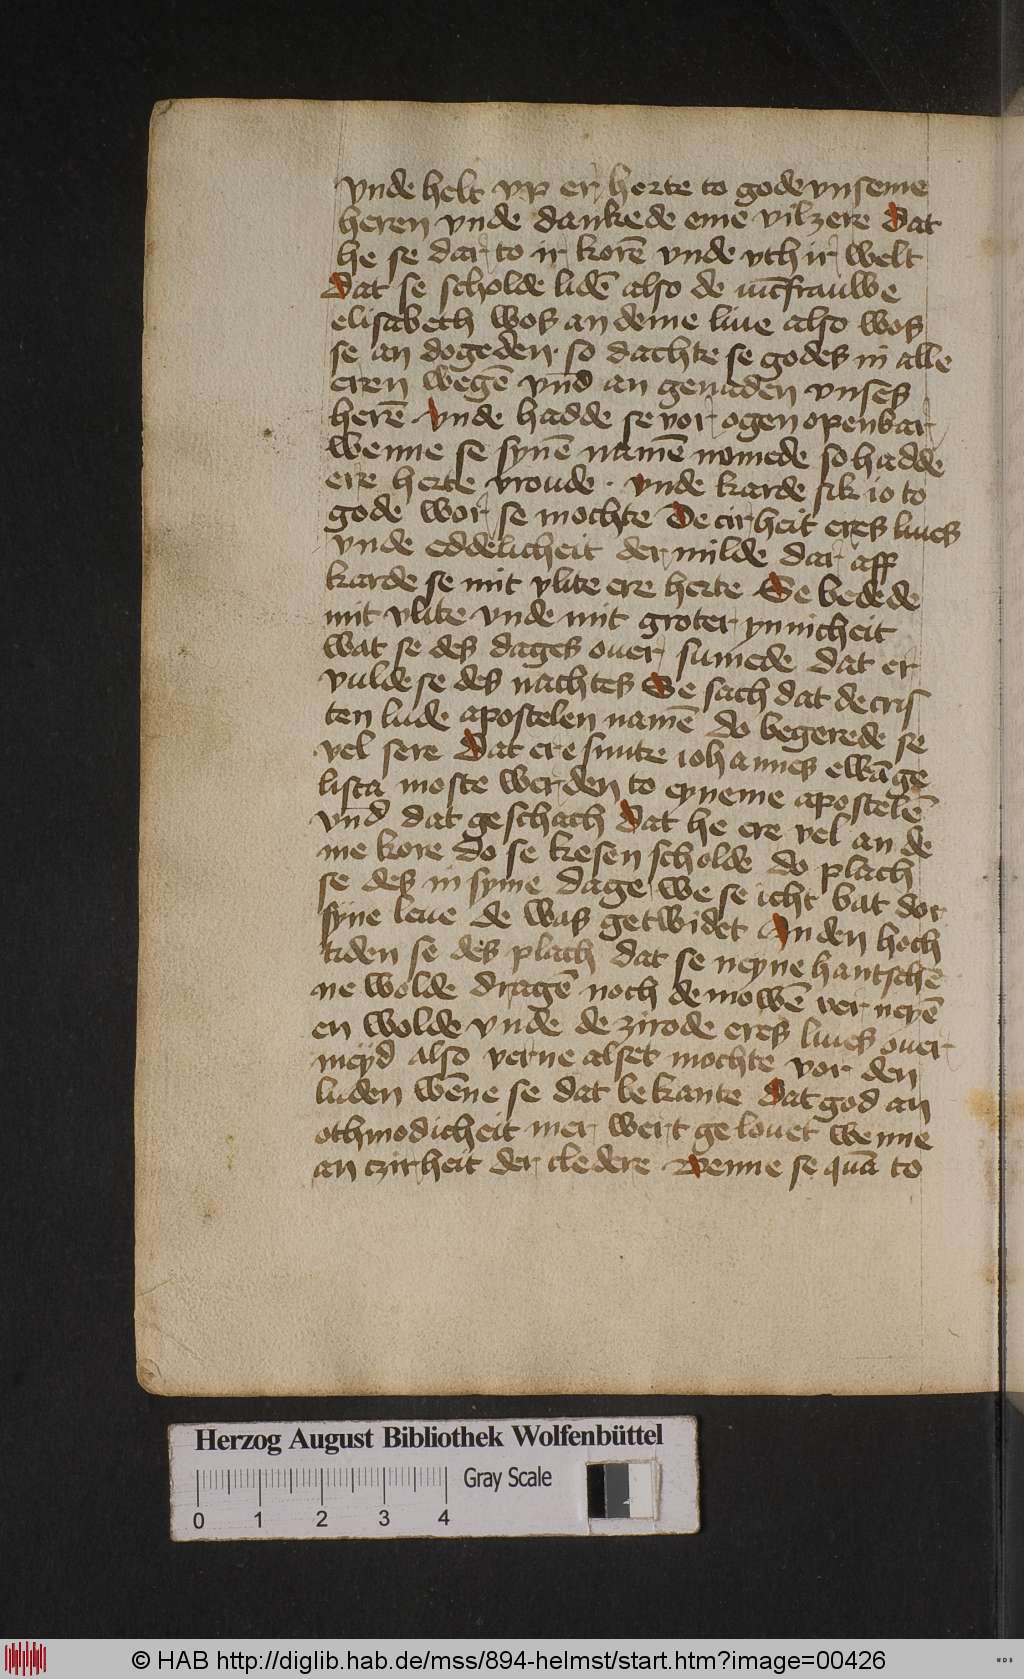 vnde helt vp er herte to gode vnseme
heren vnde dankede eme vilzere dat
he se dar to ir korē vnde vth ir welt
dat se scholde lidē also de iūcfrauwe
elisabech wos an deme liue also wos
se an dogeden · so dachte se godes in alle
eren wegē vnd an genaden vnses
herē vnde hadde se vor ogen openbar
wenne se synē namē nomede so hadde
ere herte vroude · vnde karde sik io to
gode wor se mochte De cirheit eres liues
vnde eddelicheit der milde dar aff
karde se mit vlite ere herte Se bedede
mit vlite vnde mit groter ynnicheit
wat se des dages ouer sumede dat er
vulde se des nachtes Se sach dat de cris
ten lude apostelen namē do begerede se
vel sere dat ere sunte iohannes ewāge
lista moste werden to eyneme apostelē
vnd dat geschach dat he ere vel an de
me kore do se kesen scholde do plach
se des in syme dage we se icht bat dor
syne leue de was getwidet An den hoch
tiden se des plach dat se neyne hantschē
ne wolde dragē noch de mowē ver neyē
en wolde vnde de zirode eres liues ouer
meyd also verne alset mochte vor den
luden wēne se dat bekante dat god an
othmodicheit mer wert gelouet wenne
an czirheit der cledere Wenne se quā to
Herzog August Bibliothek Wolfenbüttel
Gray Scale
0 1 2 3 4
© HAB http://diglib.hab.de/mss/894-helmst/start.htm?image=00426